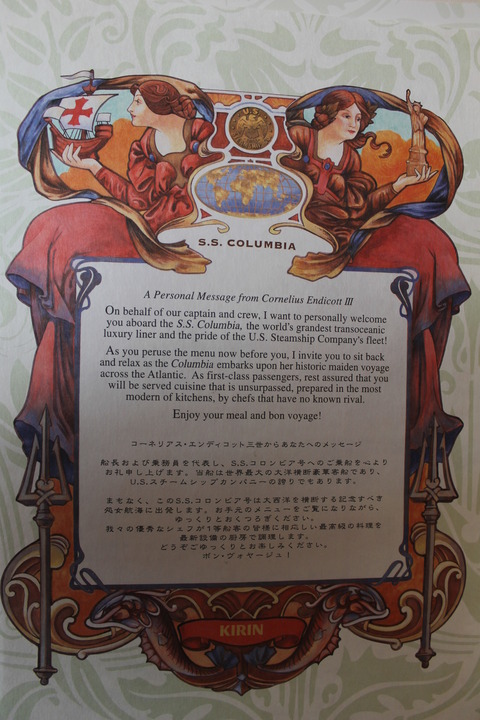 S.S. COLUMBIA
A Personal Message from Cornelius Endicott III
On behalf of our captain and crew, I want to personally welcome
you aboard the S.S. Columbia, the world's grandest transoceanic
luxury liner and the pride of the U.S. Steamship Company's fleet!
As you peruse the menu now before you, I invite you to sit back
and relax as the Columbia embarks upon her historic maiden voyage
across the Atlantic. As first-class passengers, rest assured that you
will be served cuisine that is unsurpassed, prepared in the most
modern of kitchens, by chefs that have no known rival.
Enjoy your meal and bon voyage!
コーネリアス・エンディコット三世からあなたへのメッセージ
船長および乗務員を代表し、S.S.コロンビア号へのご乗船を心より
お礼申し上げます。当船は世界最大の大洋横断豪華客船であり、
U.S.スチームシップカンパニーの誇りでもあります。
まもなく、このS.S.コロンビア号は大西洋を横断する記念すべき
処女航海に出発します。お手元のメニューをご覧になりながら、
ゆっくりとおくつろぎください。
我々の優秀なシェフが1等船客の皆様に相応しい最高級の料理を
最新設備の厨房で調理します。
どうぞごゆっくりとお楽しみください。
ボン・ヴォヤージュ!
KIRIN